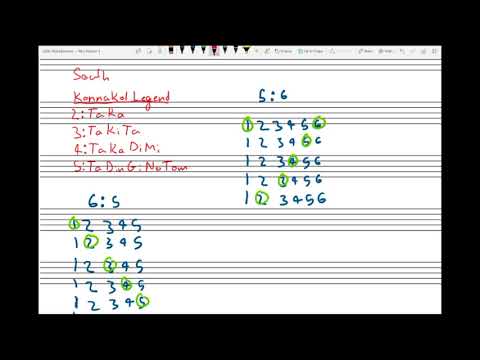 South
Konnakol Legend
2:TaKa
3:TaKiTa
4:TaKa DiMi
5:TaDinGiNaTom
6:5
1 2 3 4 5
1 2 3 4 5
1 2 3 4 5
1 2 3 4 5
1 2 3 4 5
5:6
1 2 3 4 5 6
1 2 3 4 5 6
1 2 3 4 5 6
1 2 3 4 5 6
1 2 3 4 5 6